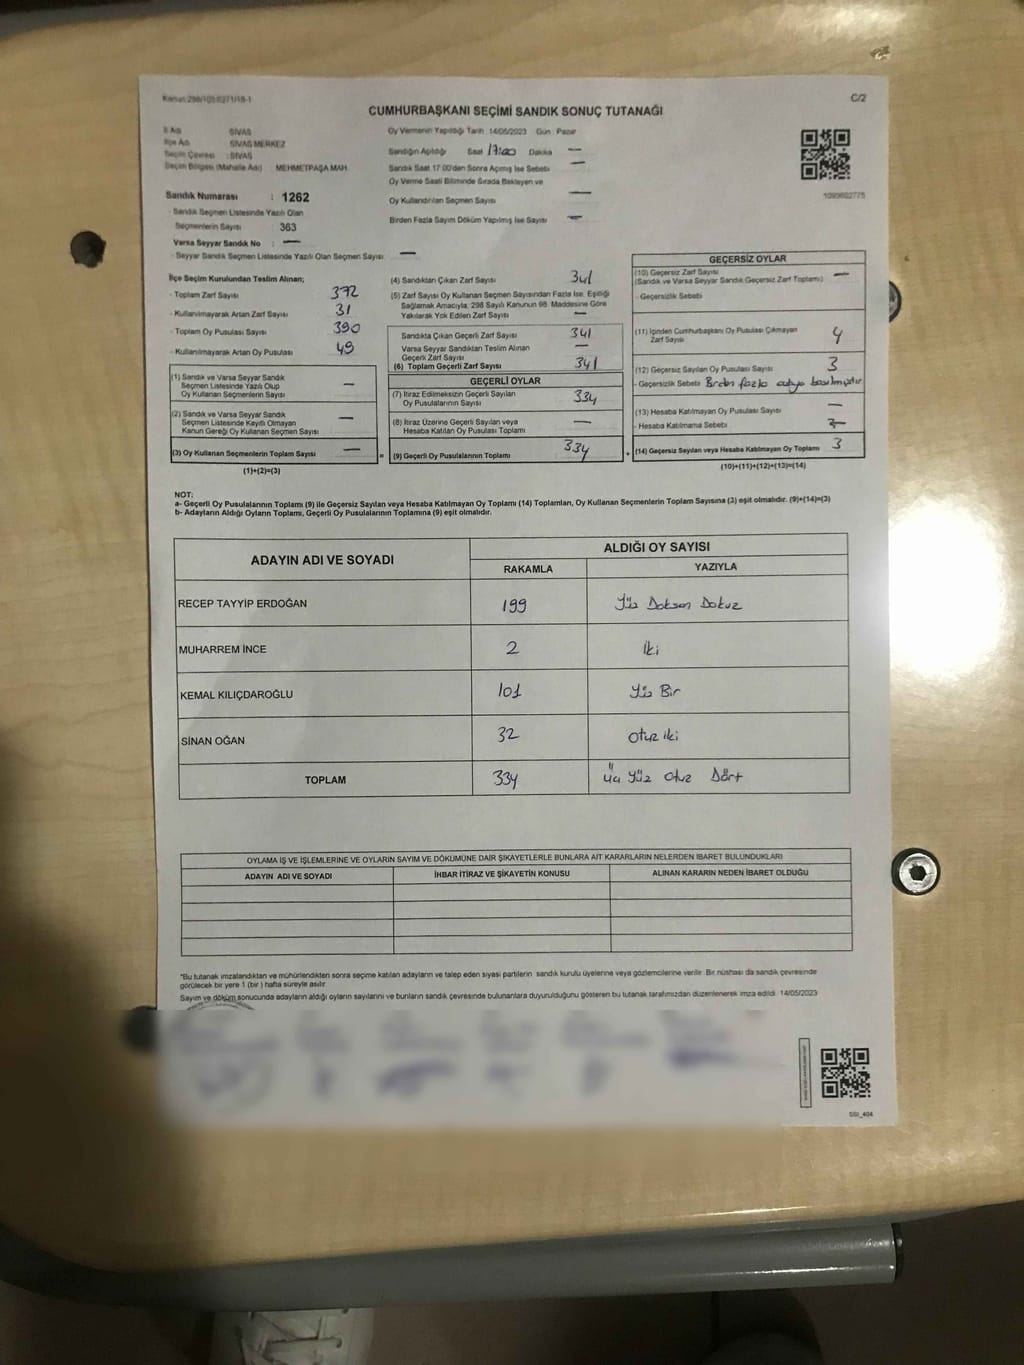 C/2
CUMHURBAŞKANI SEÇİMİ SANDIK SONUÇ TUTANAĞI
İl Adı : SİVAS
İlçe Adı : SİVAS MERKEZ
Seçim Çevresi : SİVAS
Seçim Bölgesi (Mahalle Adı) : MEHMETPAŞA MAH.
Sandık Numarası : 1262
Sandık Seçmen Listesinde Yazılı Olan
Seçmenlerin Sayısı : 363
Varsa Seyyar Sandık No : —
- Seyyar Sandık Seçmen Listesinde Yazılı Olan Seçmen Sayısı : —
Oy Vermenin Yapıldığı Tarih : 14/05/2023 Gün : Pazar
Sandığın Açıldığı Saat 17:00 Dakika —
Sandık Saat 17:00'den Sonra Açılmış İse Sebebi —
Oy Verme Saati Bitiminde Sırada Bekleyen ve
Oy Kullandırılan Seçmen Sayısı —
Birden Fazla Sayım Döküm Yapılmış İse Sayısı —
İlçe Seçim Kurulundan Teslim Alınan;
- Toplam Zarf Sayısı 372
- Kullanılmayarak Artan Zarf Sayısı 31
- Toplam Oy Pusulası Sayısı 390
- Kullanılmayarak Artan Oy Pusulası 49
(1) Sandık ve Varsa Seyyar Sandık
Seçmen Listesinde Yazılı Olup
Oy Kullanan Seçmenlerin Sayısı —
(2) Sandık ve Varsa Seyyar Sandık
Seçmen Listesinde Kayıtlı Olmayan
Kanun Gereği Oy Kullanan Seçmen Sayısı —
(3) Oy Kullanan Seçmenlerin Toplam Sayısı —
(1)+(2)=(3)
(4) Sandıktan Çıkan Zarf Sayısı 341
(5) Zarf Sayısı Oy Kullanan Seçmen Sayısından Fazla İse, Eşitliği
Sağlamak Amacıyla, 298 Sayılı Kanunun 98. Maddesine Göre
Yakılarak Yok Edilen Zarf Sayısı —
Sandıkta Çıkan Geçerli Zarf Sayısı 341
Varsa Seyyar Sandıktan Teslim Alınan
Geçerli Zarf Sayısı —
(6) Toplam Geçerli Zarf Sayısı 341
GEÇERLİ OYLAR
(7) İtiraz Edilmeksizin Geçerli Sayılan
Oy Pusulalarının Sayısı 334
(8) İtiraz Üzerine Geçerli Sayılan veya
Hesaba Katılan Oy Pusulası Toplamı —
= (9) Geçerli Oy Pusulalarının Toplamı 334
GEÇERSİZ OYLAR
(10) Geçersiz Zarf Sayısı
(Sandık ve Varsa Seyyar Sandık Geçersiz Zarf Toplamı) —
- Geçersizlik Sebebi
(11) İçinden Cumhurbaşkanı Oy Pusulası Çıkmayan
Zarf Sayısı 4
(12) Geçersiz Sayılan Oy Pusulası Sayısı 3
- Geçersizlik Sebebi Birden fazla adaya basılmıştır
(13) Hesaba Katılmayan Oy Pusulası Sayısı —
- Hesaba Katılmama Sebebi
+ (14) Geçersiz Sayılan veya Hesaba Katılmayan Oy Toplamı 3
(10)+(11)+(12)+(13)=(14)
NOT:
a- Geçerli Oy Pusulalarının Toplamı (9) ile Geçersiz Sayılan veya Hesaba Katılmayan Oy Toplamı (14) Toplamları, Oy Kullanan Seçmenlerin Toplam Sayısına (3) eşit olmalıdır. (9)+(14)=(3)
b- Adayların Aldığı Oyların Toplamı, Geçerli Oy Pusulalarının Toplamına (9) eşit olmalıdır.
ADAYIN ADI VE SOYADI
ALDIĞI OY SAYISI
RAKAMLA YAZIYLA
RECEP TAYYİP ERDOĞAN 199 Yüz Doksan Dokuz
MUHARREM İNCE 2 İki
KEMAL KILIÇDAROĞLU 101 Yüz Bir
SİNAN OĞAN 32 Otuz iki
TOPLAM 334 Üç Yüz Otuz Dört
OYLAMA İŞ VE İŞLEMLERİNE VE OYLARIN SAYIM VE DÖKÜMÜNE DAİR ŞİKAYETLERLE BUNLARA AİT KARARLARIN NELERDEN İBARET BULUNDUKLARI
ADAYIN ADI VE SOYADI İHBAR İTİRAZ VE ŞİKAYETİN KONUSU ALINAN KARARIN NEDEN İBARET OLDUĞU
*Bu tutanak imzalandıktan ve mühürlendikten sonra seçime katılan adayların ve talep eden siyasi partilerin sandık kurulu üyelerine veya gözlemcilerine verilir. Bir nüshası da sandık çevresinde
görülecek bir yere 1 (bir) hafta süreyle asılır.
Sayım ve döküm sonucunda adayların aldığı oyların sayılarını ve bunların sandık çevresinde bulunanlara duyurulduğunu gösteren bu tutanak tarafımızdan düzenlenerek imza edildi. 14/05/2023
SSI_404